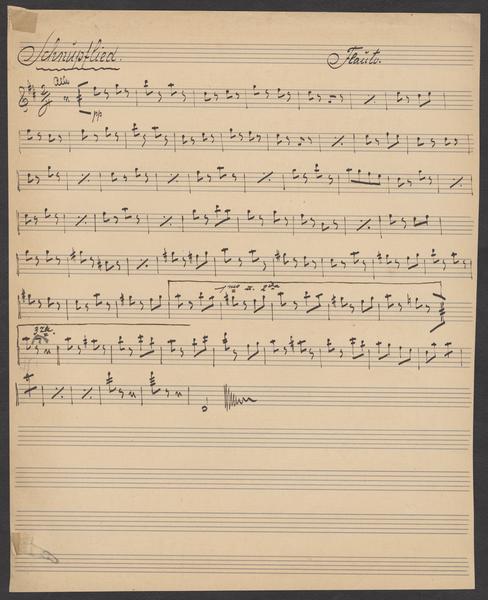 Schnupflied. Flauto.
Allo
pp
1ma u. 2da
3za.